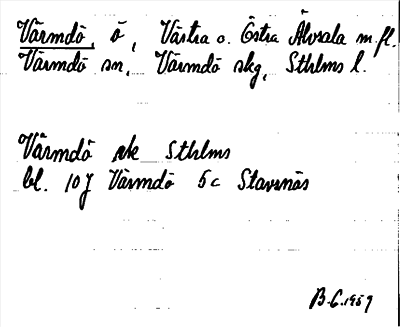 Värmdö, ö, Västra o. Östra Älvsala m.fl.
Värmdö sn, Värmdö skg, Sthlms l.
Värmdö rk Sthlms
bl. 10J Värmdö 5c Stavsnäs
B.C. 1959